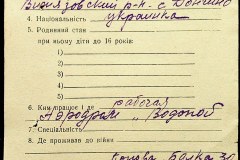 р-н с. Дончино
4. Національність українка
5. Родинний стан
при ньому діти до 16 років:
1)
2)
3)
6. Ким працює і де рабочая
"Аэродром" "Водопой"
7. Спеціальність
8. Де проживав до війни
Балка 31